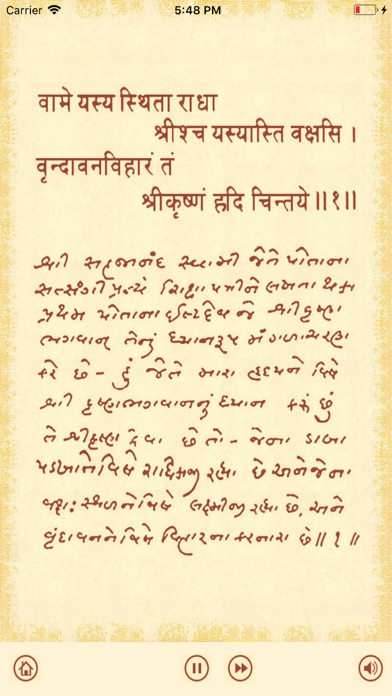 Carrier 5:48 PM
वामे यस्य स्थिता राधा
श्रीश्च यस्यास्ति वक्षसि ।
वृन्दावनविहारं तं
श्रीकृष्णं हृदि चिन्तये॥१॥
શ્રી સહજાનંદ સ્વામી જેતે પોતાના
સત્સંગી પ્રત્યે શિક્ષાપત્રીને લખતા થકા
પ્રથમ પોતાના ઈષ્ટદેવ જે શ્રીકૃષ્ણ
ભગવાન તેનું ધ્યાનરૂપ મંગળાચરણ
કરે છે - હું જેતે મારા હૃદયને વિષે
શ્રી કૃષ્ણભગવાનનું ધ્યાન કરું છું
તે શ્રીકૃષ્ણ કેવા છે તો - જેના ડાબા
પડખાને વિષે રાધિકાજી રહ્યાં છે અને જેના
વક્ષઃસ્થળને વિષે લક્ષ્મીજી રહ્યાં છે, અને
વૃંદાવનને વિષે વિહારના કરનારા છે॥૧॥